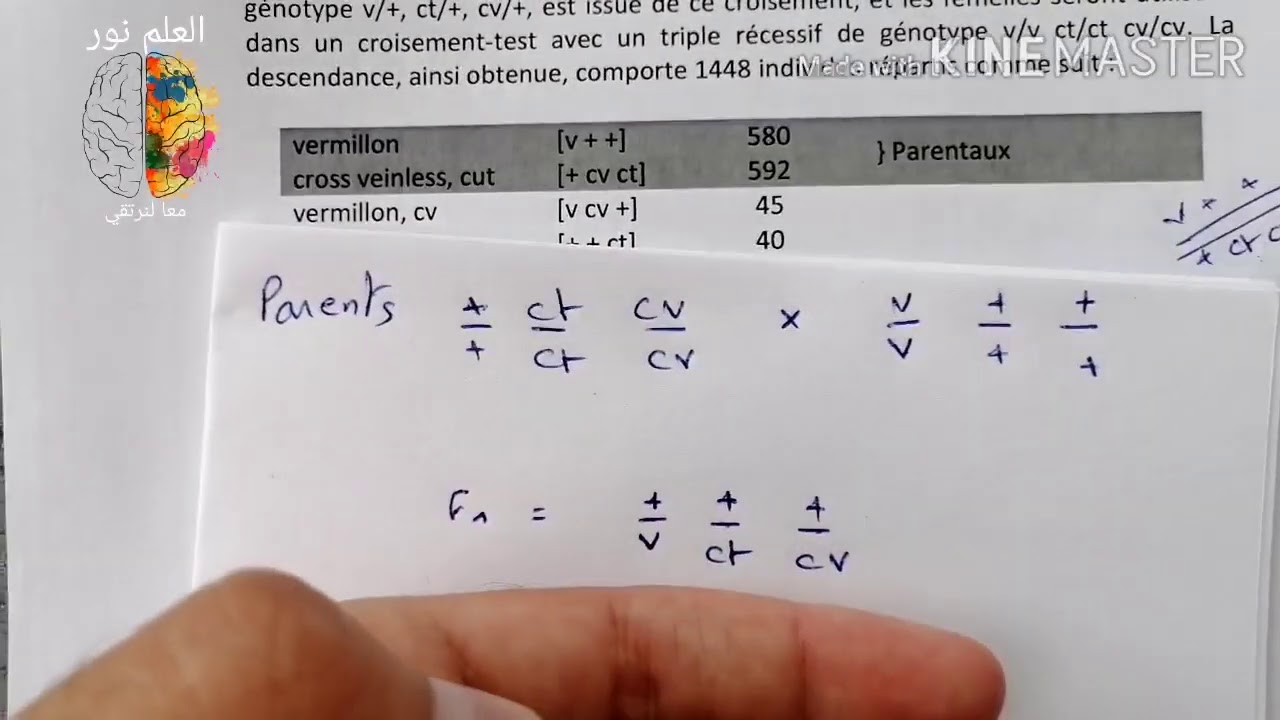 génotype v/+, ct/+, cv/+, est issue de ce croisement, et les femelles seront
dans un croisement-test avec un triple récessif de génotype v/v ct/ct cv/cv. La
descendance, ainsi obtenue, comporte 1448 individus répartis comme suit :
العلم نور
معا لنرتقي
Made with KINEMASTER
vermillon [v + +] 580
} Parentaux
cross veinless, cut [+ cv ct] 592
vermillon, cv [v cv +] 45
[+ + ct] 40
v + +
+ ct
Parents + ct cv x v + +
+ ct cv v + +
F1 = + + +
v ct cv